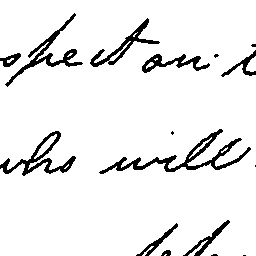 spect on
who will